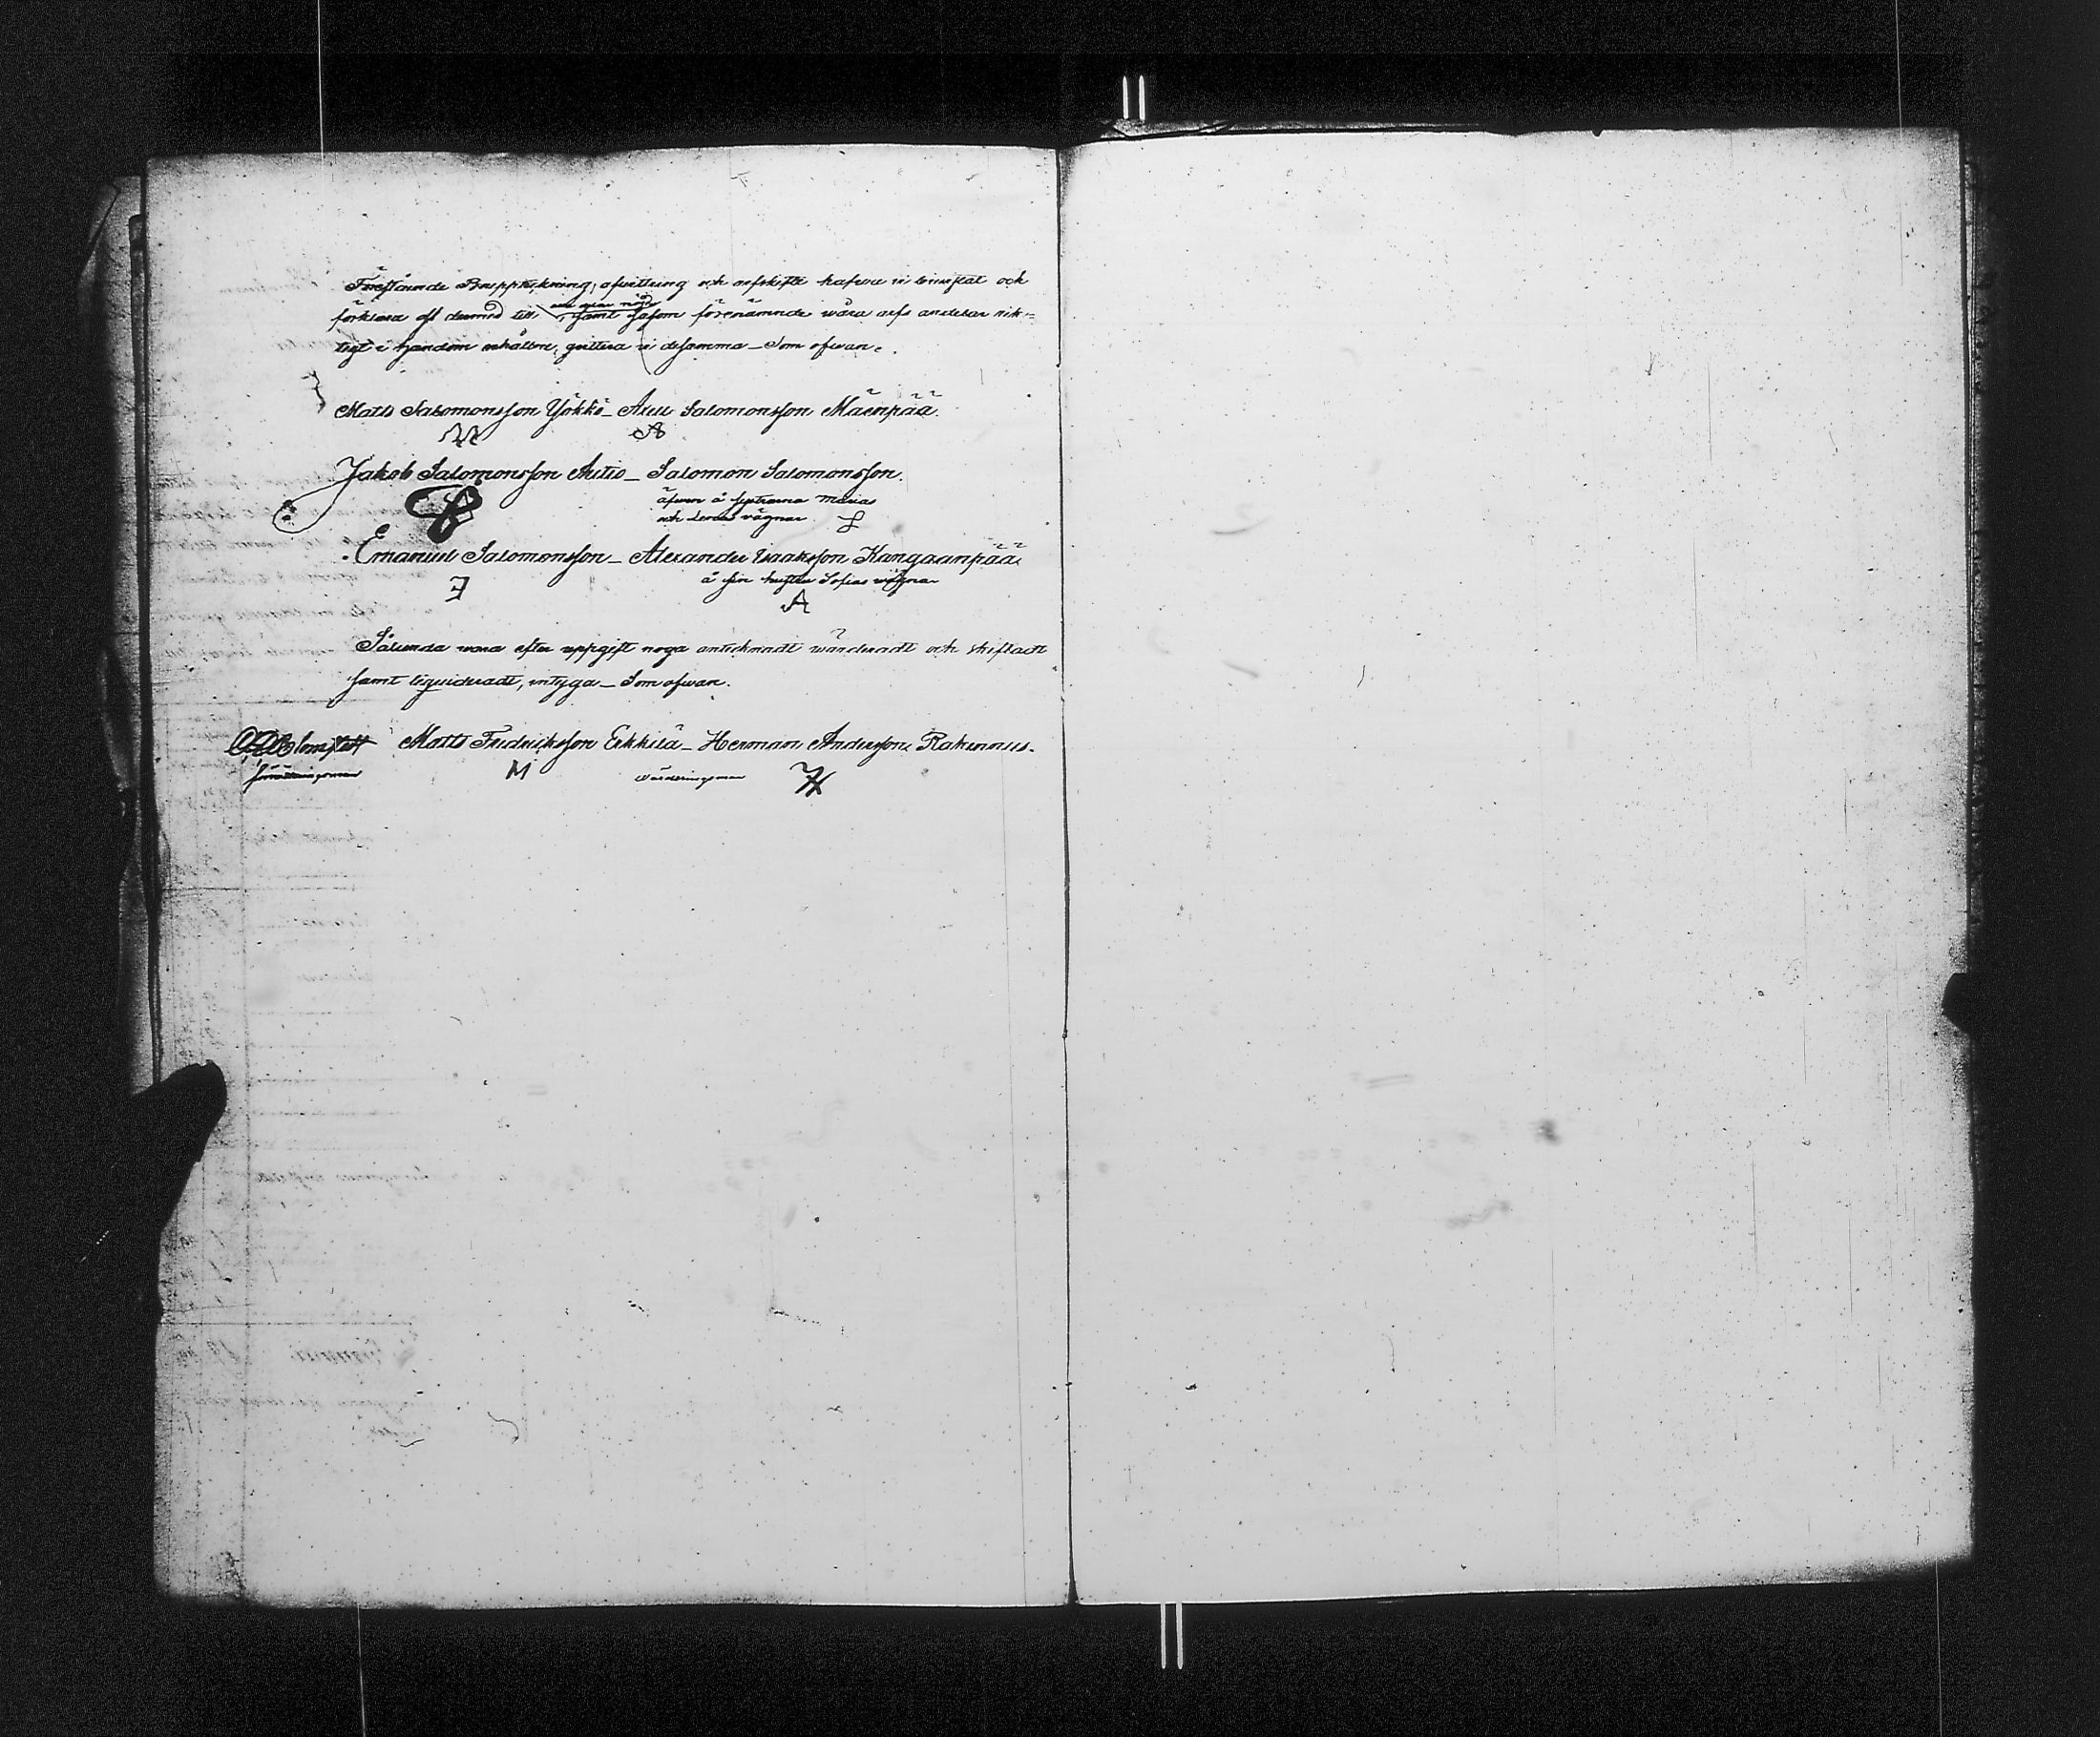 Förestående Bouppteckning, afvittring och arfskifte hafva vi bevistat och
förklara oss dermed till
alla delar nöjde
, samt såsom förenämnde våra arfs andelar rik=
tigt i händom erhållne, qvittera vi desamma – Som ofvan.
Matts Salomonsson Yökkö – Axel Salomonsson Mäenpää.
M A
Jakob Salomonsson Autio – Salomon Salomonsson.
äfven å systrarna Marias
och vägnar S
Emanuel Salomonsson – Alexander Isaaksson Kangaanpää
å sin hustru Sofias vägnar
E A
Sålunda vara efter uppgift noga antecknadt värderadt och skiftadt
samt liquideradt, intyga – Som ofvan.
Blomstedt Matts Fredriksson Erkkilä – Herman Andersson Rakennus.
förrättningsman M värderingsman H